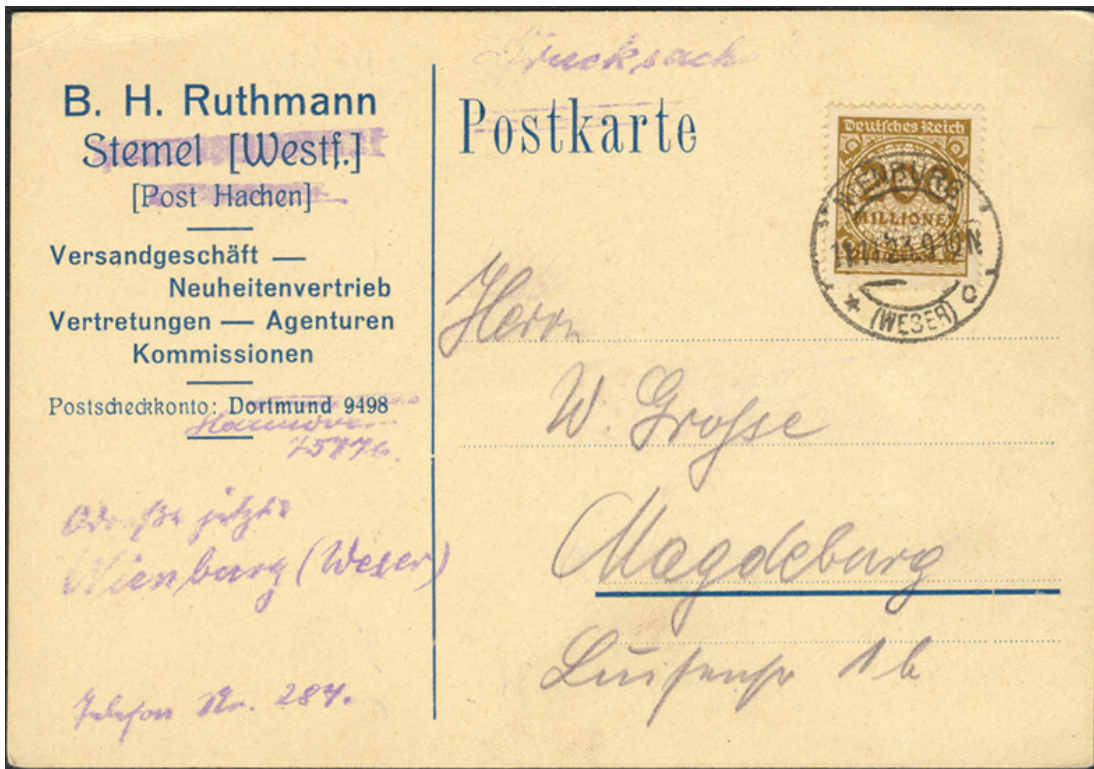 Drucksache
B. H. Ruthmann
Stemel [Westf.]
[Post Hachen]
Versandgeschäft —
Neuheitenvertrieb
Vertretungen — Agenturen
Kommissionen
Postscheckkonto: Dortmund 9498
Hannover
Adresse jetzt:
Nienburg (Weser)
Telefon Nr. 287.
Postkarte
Deutsches Reich
MILLIONEN
NIENBURG
(WESER)
Herrn
W. Grosse
Magdeburg
Luisenstr 1b